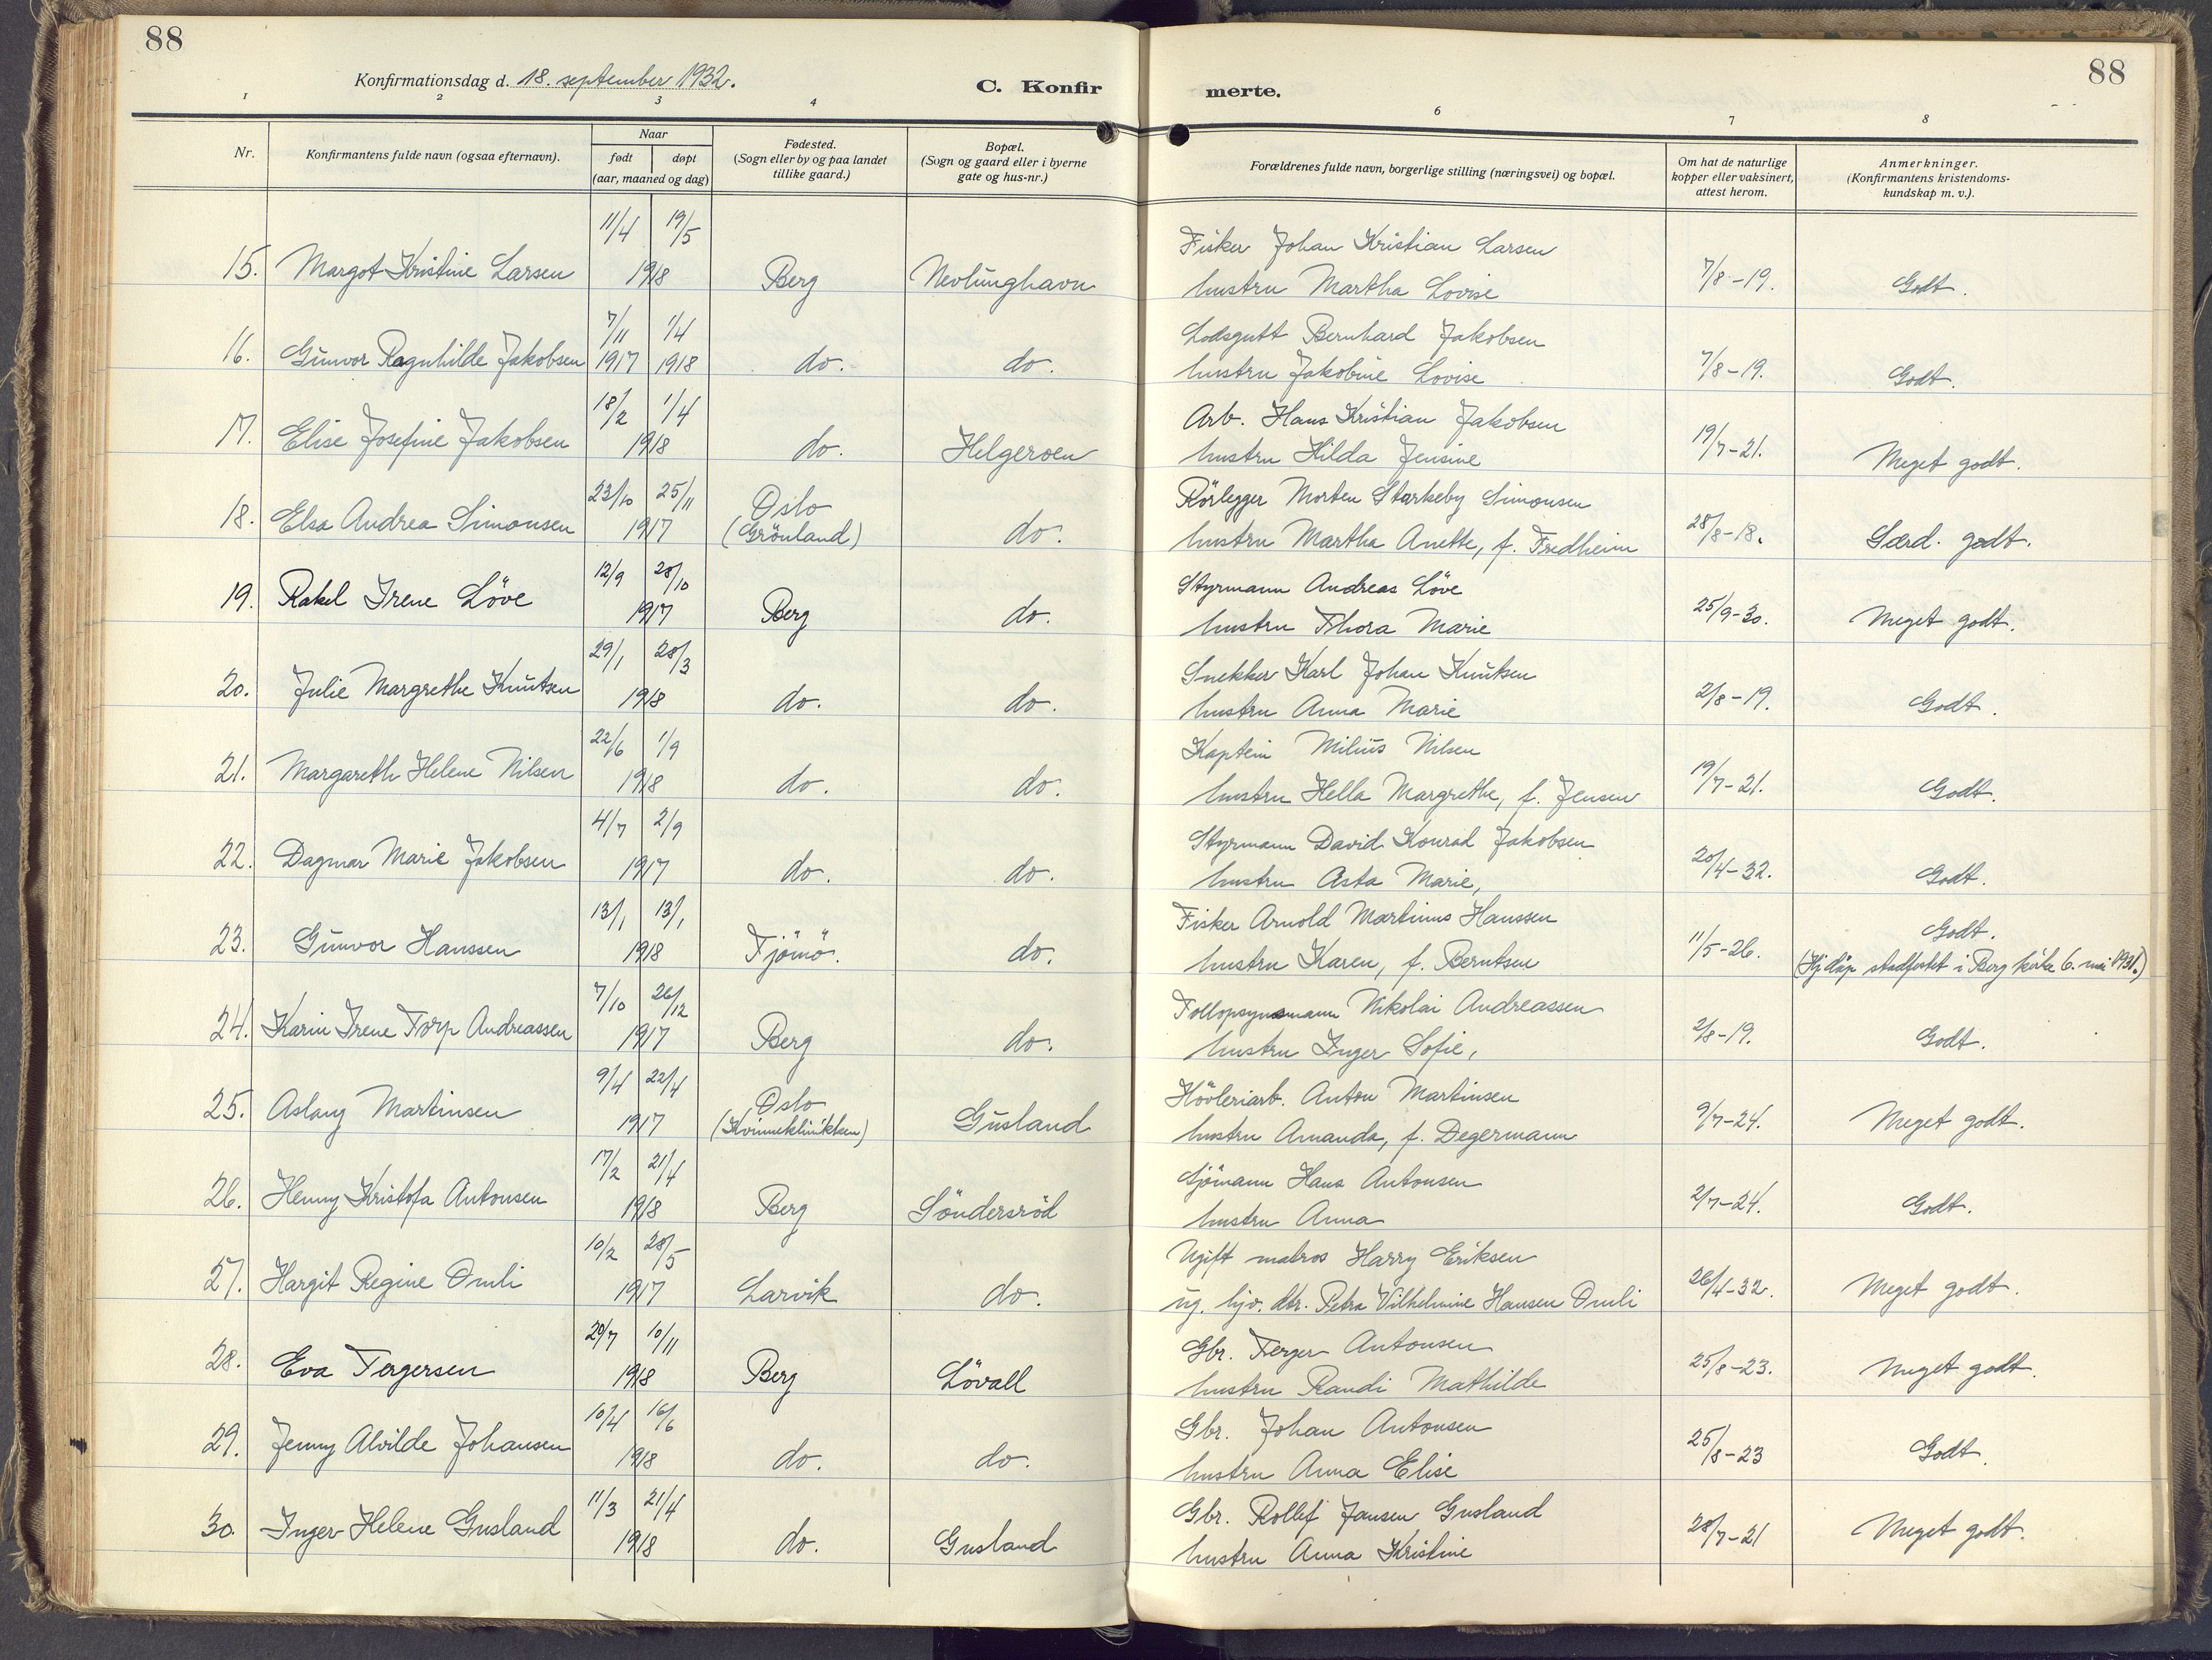 88
88
Konfirmationsdag d. 18. september 1932.
C. Konfirmerte.
1 2 3 4 6 7 8
Nr.
Konfirmantens fulde navn (ogsaa efternavn).
Naar
født døpt
(aar, maaned og dag)
Fødested.
(Sogn eller by og paa landet
tillike gaard.)
Bopæl.
(Sogn og gaard eller i byerne
gate og hus-nr.)
Forældrenes fulde navn, borgerlige stilling (næringsvei) og bopæl.
Om hat de naturlige
kopper eller vaksinert,
attest herom.
Anmerkninger.
(Konfirmantens kristendoms-
kundskap m. v.).
11/4 19/5 Fisker Johan Kristian Larsen
15. Margot Kristine Larsen 1918 Berg Nevlunghavn hustru Martha Lovise 7/8-19. Godt.
7/11 1/4 Losgutt Bernhard Jakobsen
16. Gunvor Ragnhilde Jakobsen 1917 1918 do. do. hustru Jakobine Lovise 7/8-19. Godt.
18/2 1/4 Arb. Hans Kristian Jakobsen
17. Elise Josefine Jakobsen 1918 do. Helgeroen hustru Hilda Jensine 19/7-21. Meget godt.
23/10 25/11 Oslo Rörlegger Morten Starkeby Simonsen
18. Elsa Andrea Simonsen 1917 (Grönland) do. hustru Martha Anette, f. Fredheim 28/8-18. Særd. godt.
12/9 28/10 Styrmann Andreas Löve
19. Rakel Irene Löve 1917 Berg do. hustru Thora Marie 25/9-30. Meget godt.
29/1 28/3 Snekker Karl Johan Knutsen
20. Julie Margrethe Knutsen 1918 do. do. hustru Anna Marie 2/8-19. Godt.
22/6 1/9 Kaptein Milius Nilsen
21. Margareth Helene Nilsen 1918 do. do. hustru Hella Margrethe, f. Jensen 19/7-21. Godt.
4/7 2/9 Styrmann David Konrad Jakobsen
22. Dagmar Marie Jakobsen 1917 do. do. hustru Asta Marie, 20/4-32. Godt.
13/1 13/1 Fisker Arnold Martinus Hanssen Godt.
23. Gunvor Hanssen 1918 Tjömö. do. hustru Karen, f. Berntsen 11/5-26. (Hj.dåp stadfestet i Berg kirke 6. mai 1931.)
7/10 26/12 Tollopsynsmann Nikolai Andreassen
24. Karin Irene Torp Andreassen 1917 Berg do. hustru Inger Sofie, 2/8-19. Godt.
9/4 22/4 Oslo Hövleriarb. Anton Martinsen
25. Aslaug Martinsen 1917 (Kvinneklinikken) Gusland hustru Amanda, f. Degermann 9/7-24. Meget godt.
17/2 21/4 Sjömann Hans Antonsen
26. Henny Kristofa Antonsen 1918 Berg Söndersröd hustru Anna 2/7-24. Godt.
10/2 28/5 Ugift matros Harry Eriksen
27. Hargit Regine Omli 1917 Larvik do. ug. hjv. dtr. Petra Vilhelmine Hansen Omli 26/4-32. Meget godt.
29/7 10/11 Gbr. Terger Antonsen
28. Eva Tergersen 1918 Berg Lövall hustru Randi Mathilde 25/8-23. Meget godt.
10/4 16/6 Gbr. Johan Antonsen
29. Jenny Alvilde Johansen 1918 do. do. hustru Anna Elise 25/8-23 Godt.
11/3 21/4 Gbr. Rollef Jansen Gusland
30. Inger Helene Gusland 1918 do. Gusland hustru Anna Kristine 28/7-21 Meget godt.